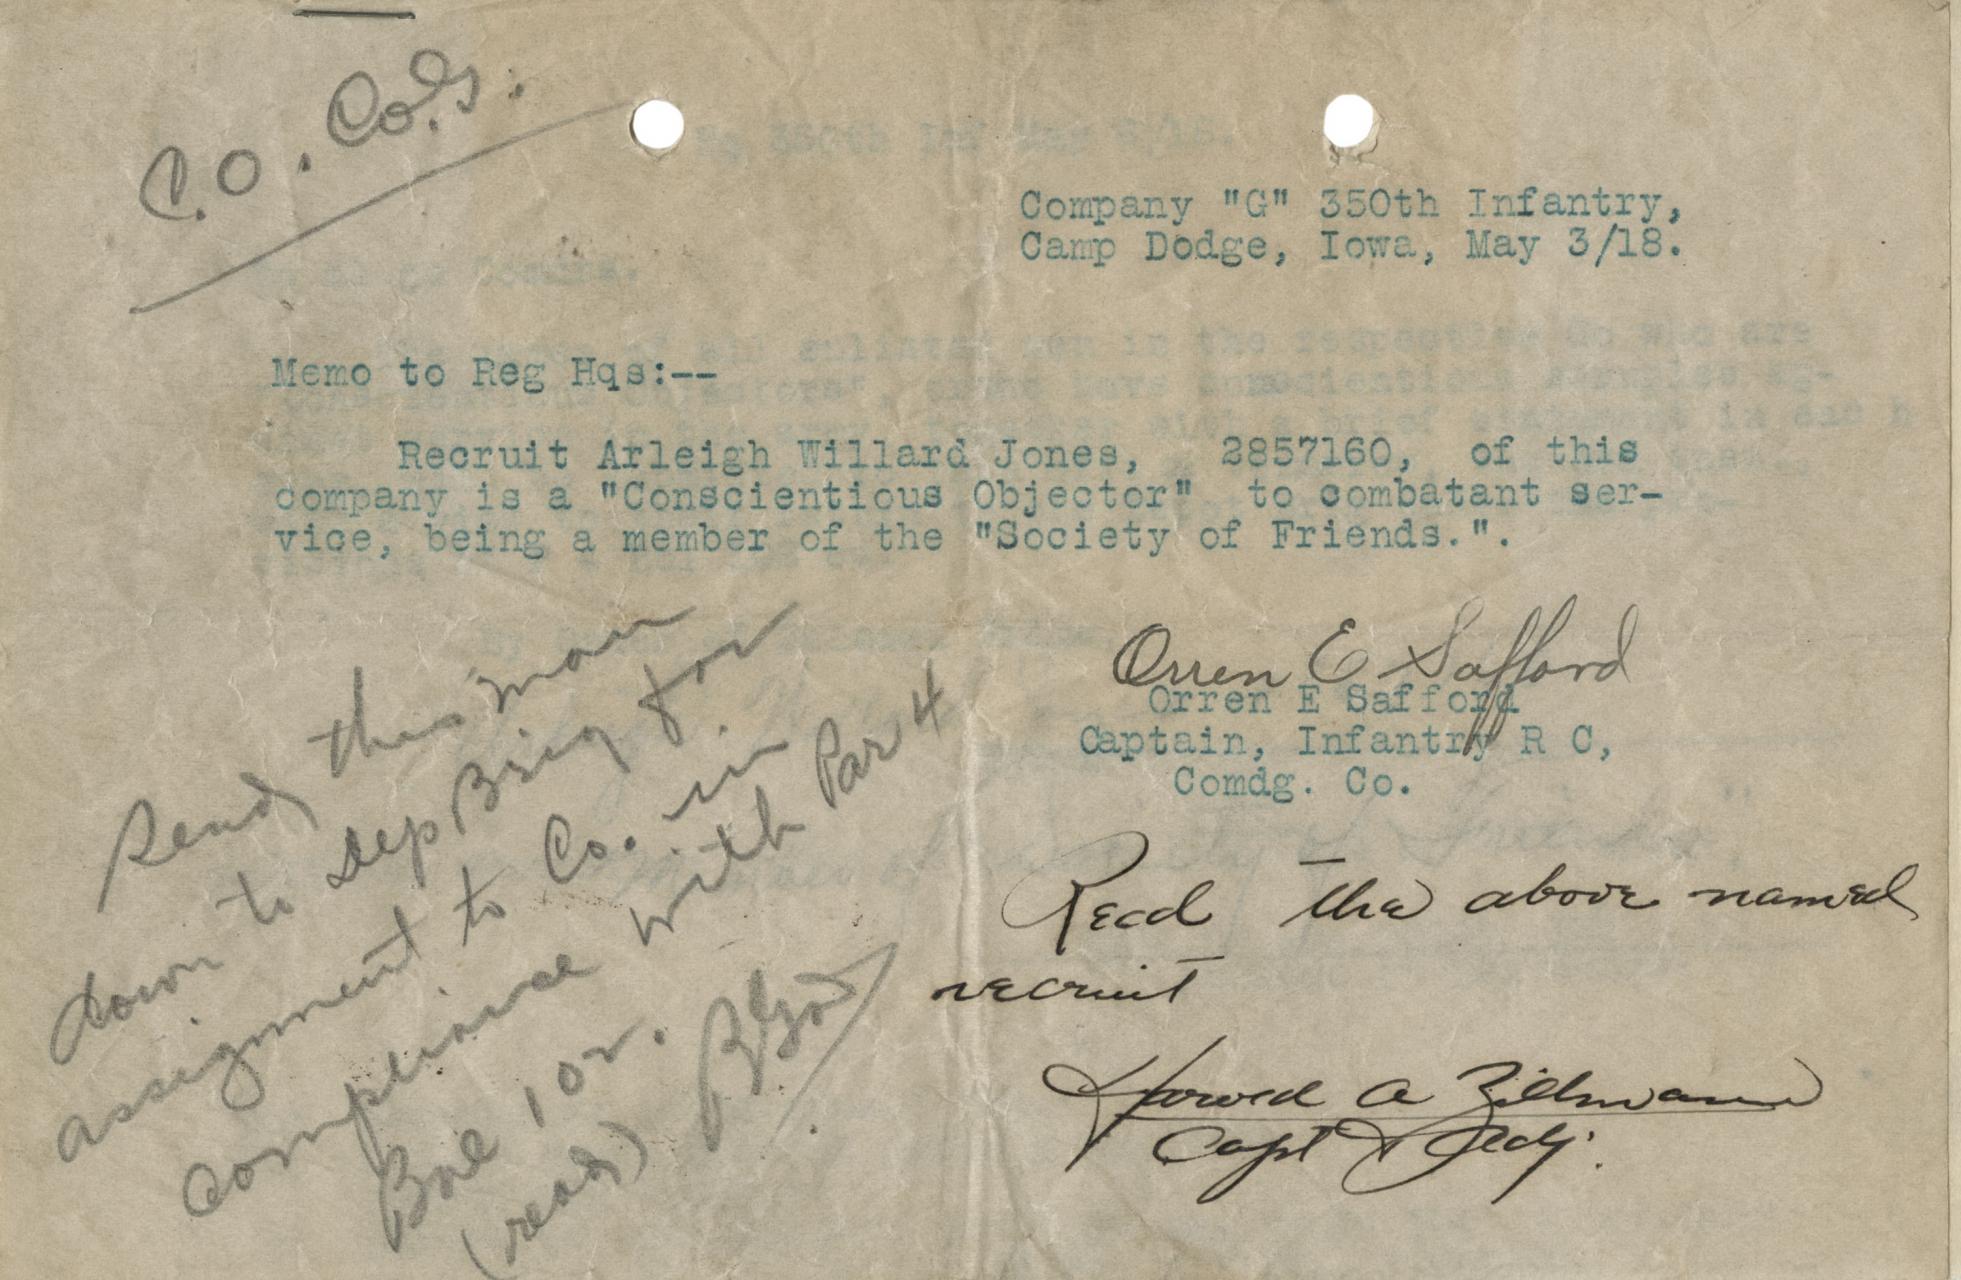 C.O. Co. G.
Company "G" 350th Infantry,
Camp Dodge, Iowa, May 3/18.
Memo to Reg Hqs:--
Recruit Arleigh Willard Jones, 2857160, of this
company is a "Conscientious Objector" to combatant ser-
vice, being a member of the "Society of Friends.".
Orren E Safford
Orren E Safford
Captain, Infantry R C,
Comdg. Co.
Send this man
down to Dep Brig for
assignment to Co. in
compliance with Par 4
(read)
Recd the above named
recruit
A Zillmann
Capt & Adj.